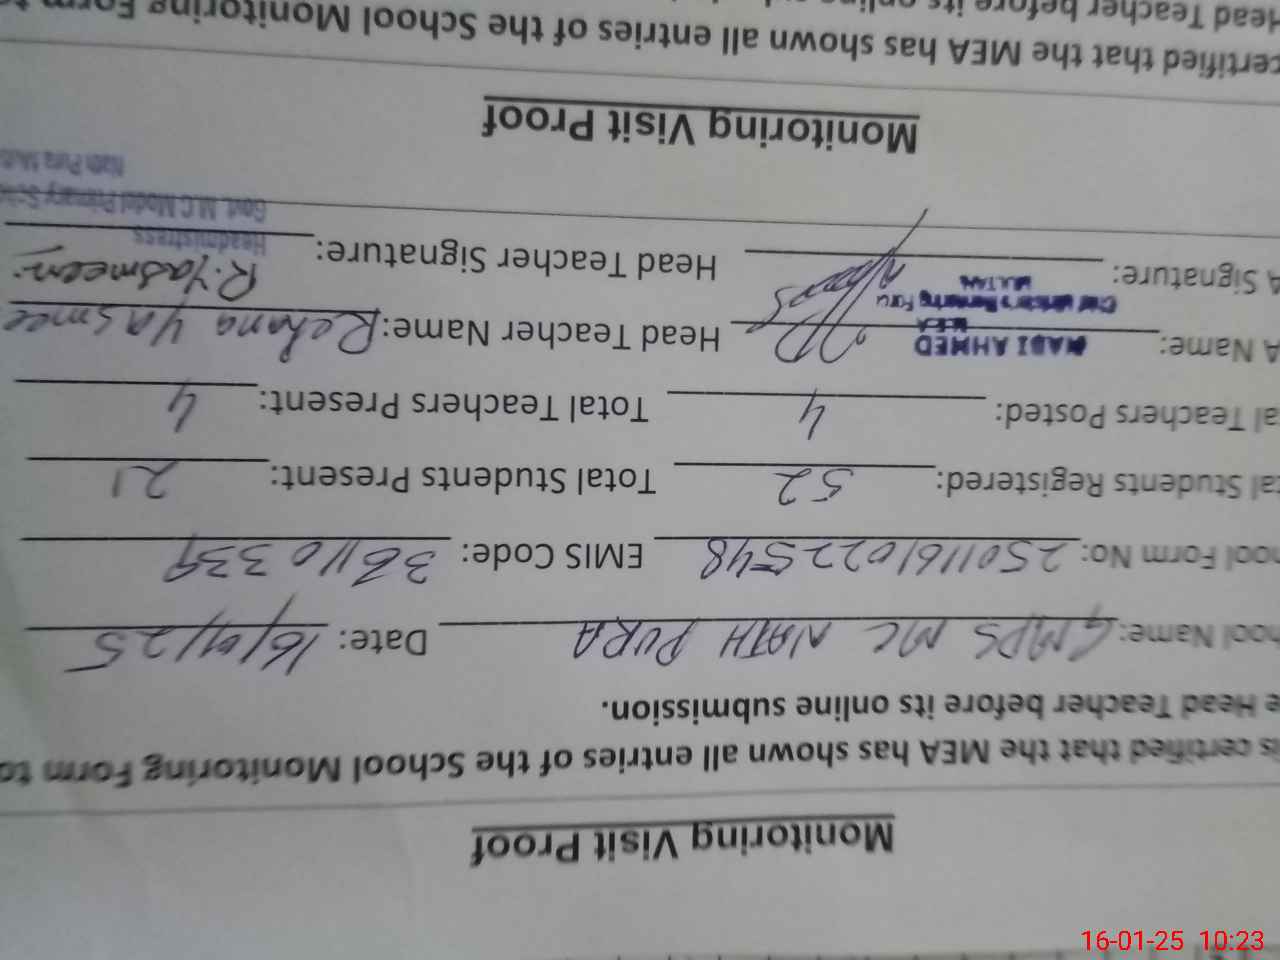 Monitoring Visit Proof
is certified that the MEA has shown all entries of the School Monitoring Form to
e Head Teacher before its online submission.
hool Name: GMPS MC NATH PURA Date: 16/01/25
hool Form No: 2501161022548 EMIS Code: 36110339
tal Students Registered: 52 Total Students Present: 21
al Teachers Posted: 4 Total Teachers Present: 4
A Name: NADI AHMED Head Teacher Name: Rehana Yasmee
MEA
Chief Minister's Monitoring Force
MULTAN
A Signature: Head Teacher Signature: R.Yasmeen
Headmistress
Govt. M.C Model Primary Scho
Nath Pura Mult
Monitoring Visit Proof
certified that the MEA has shown all entries of the School Monitoring Form to
Head Teacher before its online
16-01-25 10:23